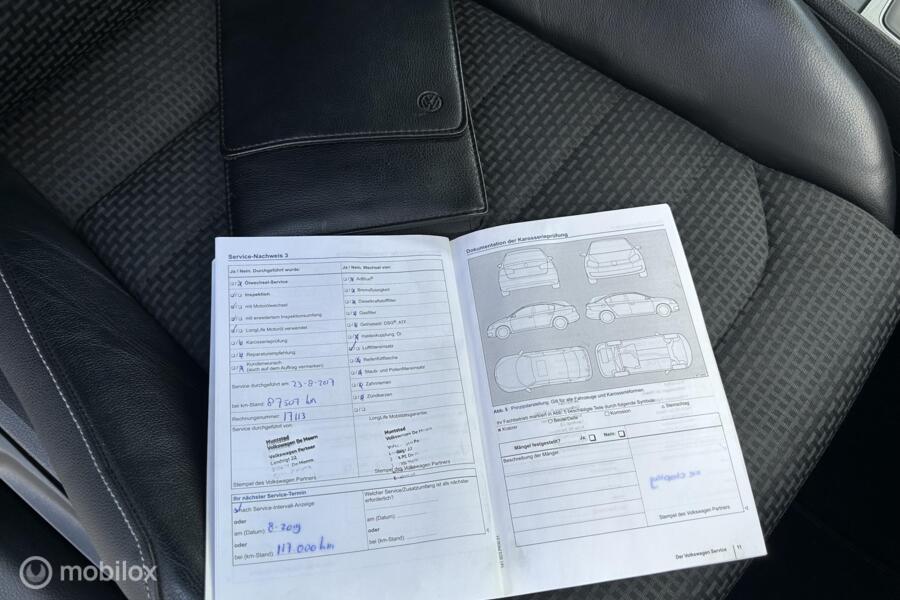 Service-Nachweis 3
Ja / Nein. Durchgeführt wurde:
Ölwechsel-Service
Inspektion
mit Motorölwechsel
mit erweitertem Inspektionsumfang
LongLife Motoröl verwendet
Karosserieprüfung
Reparaturempfehlung
Kundenwunsch
(auch auf dem Auftrag vermerken)
Service durchgeführt am: 23-8-2017
bei km-Stand: 87507 km
Rechnungsnummer: 17113
Service durchgeführt von:
Muntstad
Volkswagen De Meern
Volkswagen Partner
Stempel des Volkswagen Partners
Ja / Nein. Wechsel von:
AdBlue®
Bremsflüssigkeit
Dieselkraftstofffilter
Gasfilter
Getriebeöl: DSG®, ATF
Haldexkupplung, Öl
Luftfiltereinsatz
Reifenfüllflasche
Staub- und Pollenfiltereinsatz
Zahnriemen
Zündkerzen
LongLife Mobilitätsgarantie:
Muntstad
Volkswagen De Meern
Stempel des Volkswagen Partners
Ihr nächster Service-Termin
nach Service-Intervall-Anzeige
oder
am (Datum): 8-2019
oder
bei (km-Stand): 117.000 km
Welcher Service/Zusatzumfang ist als nächster
erforderlich?
am (Datum):
oder
bei (km-Stand):
Dokumentation der Karosserieprüfung
Abb. 5 Prinzipdarstellung: Gilt für alle Fahrzeuge und Karosserieformen.
Ihr Fachbetrieb markiert in Abb. 5 beschädigte Teile durch folgende Symbole:
x Kratzer
O Beule/Delle
□ Korrosion
△ Steinschlag
Mängel festgestellt? Ja: Nein:
Beschreibung der Mängel:
Stempel des Volkswagen Partners
Der Volkswagen Service 11
mobilox